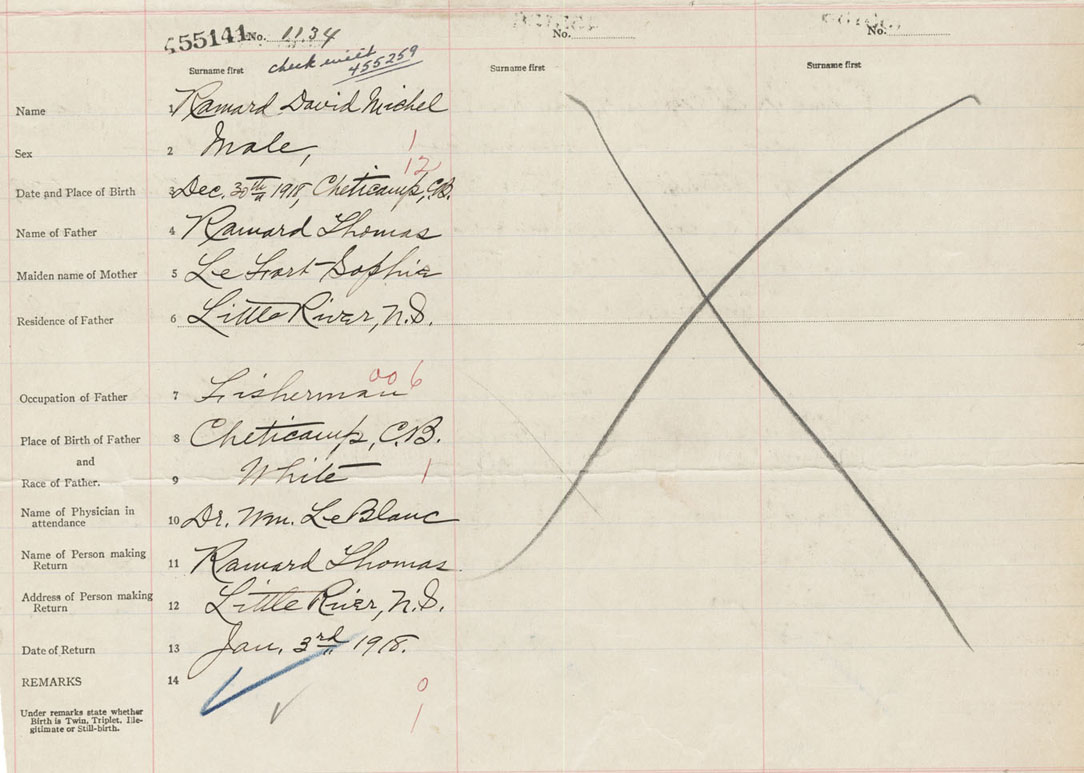 455141 No. 1134 No. No.
check with 455259
Surname first Surname first Surname first
Name 1 Raward David Michel
Sex 2 Male, 1
12
Date and Place of Birth 3 Dec. 30th 1918, Cheticamp, C.B.
Name of Father 4 Raward Thomas
Maiden name of Mother 5 Le Fort Sophie
Residence of Father 6 Little River, N.S.
006
Occupation of Father 7 Fisherman
Place of Birth of Father 8 Cheticamp, C.B.
and
Race of Father. 9 White 1
Name of Physician in attendance 10 Dr. Wm. LeBlanc
Name of Person making Return 11 Raward Thomas.
Address of Person making Return 12 Little River, N.S.
Date of Return 13 Jan. 3rd 1918.
REMARKS 14
0
Under remarks state whether 1
Birth is Twin, Triplet, Ille-
gitimate or Still-birth.